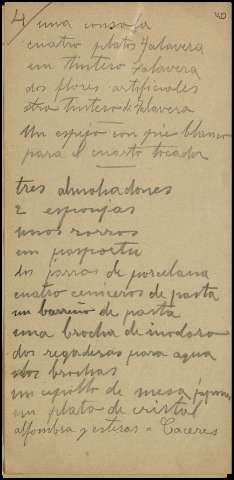 4 una consola
cuatro platos Talavera
un tintero Talavera
dos flores artificiales
otro tintero de Talavera
Un espejo con pie blanco
para el cuarto tocador
tres almohadones
2 esponjas
unos zorros
un pasportu
dos jarras de porcelana
cuatro ceniceros de pasta
un barreño de pasta
una brocha de inodoro
dos regaderas para agua
dos brochas
un cepillo de mesa
un plato de cristal
alfombra y esteras = Caceres